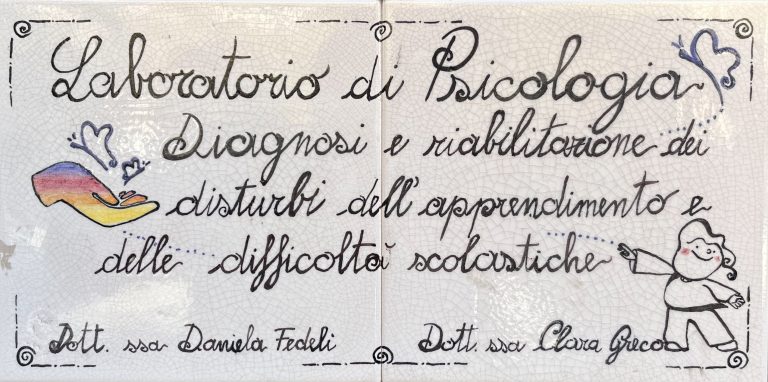 Laboratorio di Psicologia
Diagnosi e riabilitazione dei
disturbi dell'apprendimento e
delle difficoltà scolastiche
Dott. ssa Daniela Fedeli Dott. ssa Clara Greco